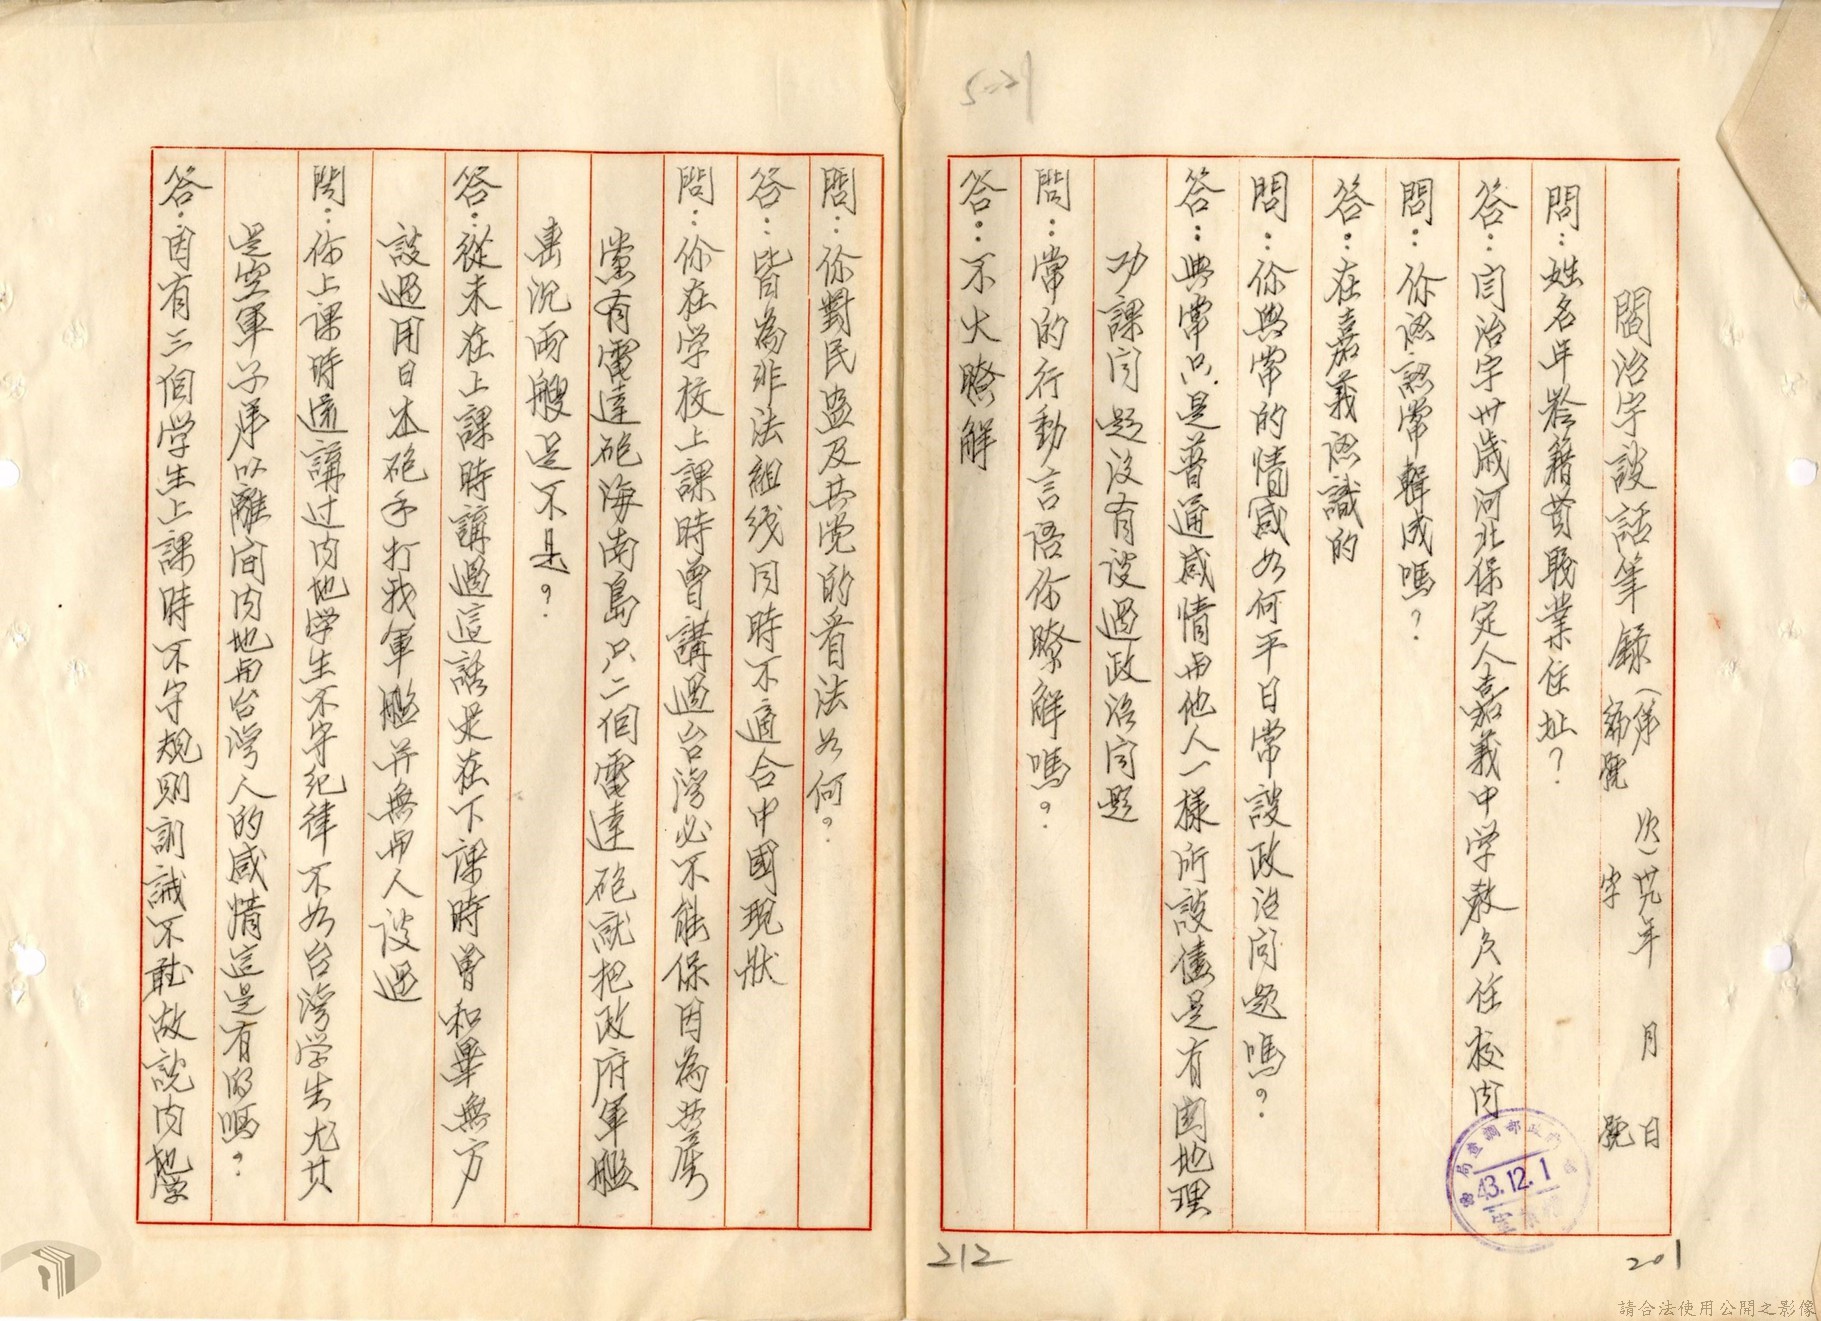 5-21
閻治宇談話筆錄(第 次)卅九年 月 日
編號 字 號
問:姓名年齡籍貫職業住址?
答:閻治宇卅歲河北保定人嘉義中学教員住校内
問:你認認常輯成嗎?
答:在嘉義認識的
問:你與常的情感如何平日常談政治問題嗎?
答:與常只是普通感情与他人一樣所談儘是有関地理
功課问題没有談過政治问題
問:常的行動言語你瞭解嗎?
答:不大瞭解
問:你對民盟及共党的看法如何?
答:皆為非法組线同時不適合中國現狀
問:你在学校上課時曾講過台湾必不能保因為共産
黨有電達砲海南島只二個電達砲就把政府軍艦
擊沉兩艘是不是?
答:從未在上課時講過這話是在下課時曾和畢無方
談過用日本砲手打我軍艦并無与人談過
問:你上課時還講过内地学生不守紀律不如台湾学生尤其
是空軍子弟以離间内地与台湾人的感情這是有的嗎?
答:因有三個学生上課時不守規則訓誡不聽故說内地学
局查調部政
43.12.1
212
201
請合法使用公開之影像